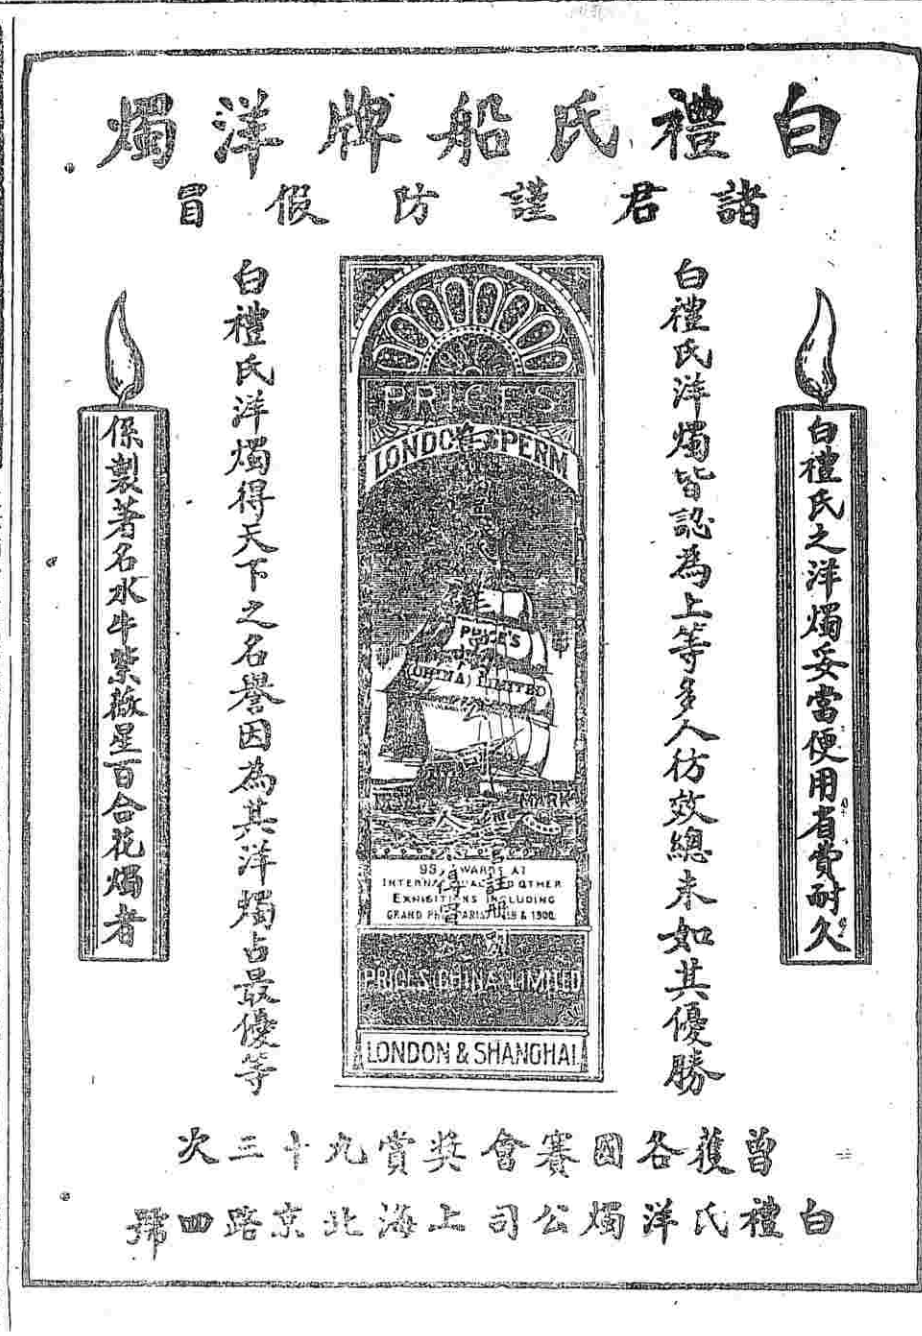 白禮氏船牌洋燭
諸君謹防假冒
白禮氏之洋燭妥當便用省費耐久
白禮氏洋燭皆認為上等多人彷效總未如其優勝
PRICE'S
LONDON SPERM
PRICE'S
(CHINA) LIMITED
MARK
洋
公
司
93 AWARDS AT
INTERNATIONAL AND OTHER
EXHIBITIONS INCLUDING
GRAND PRIX PARIS & 1900.
註册
得冒
PRICE'S CHINA LIMITED
LONDON & SHANGHAI
白禮氏洋燭得天下之名譽因為其洋燭占最優等
係製著名水牛紫薇星百合花燭者
曾獲各國賽會奬賞九十三次
白禮氏洋燭公司上海北京路四號